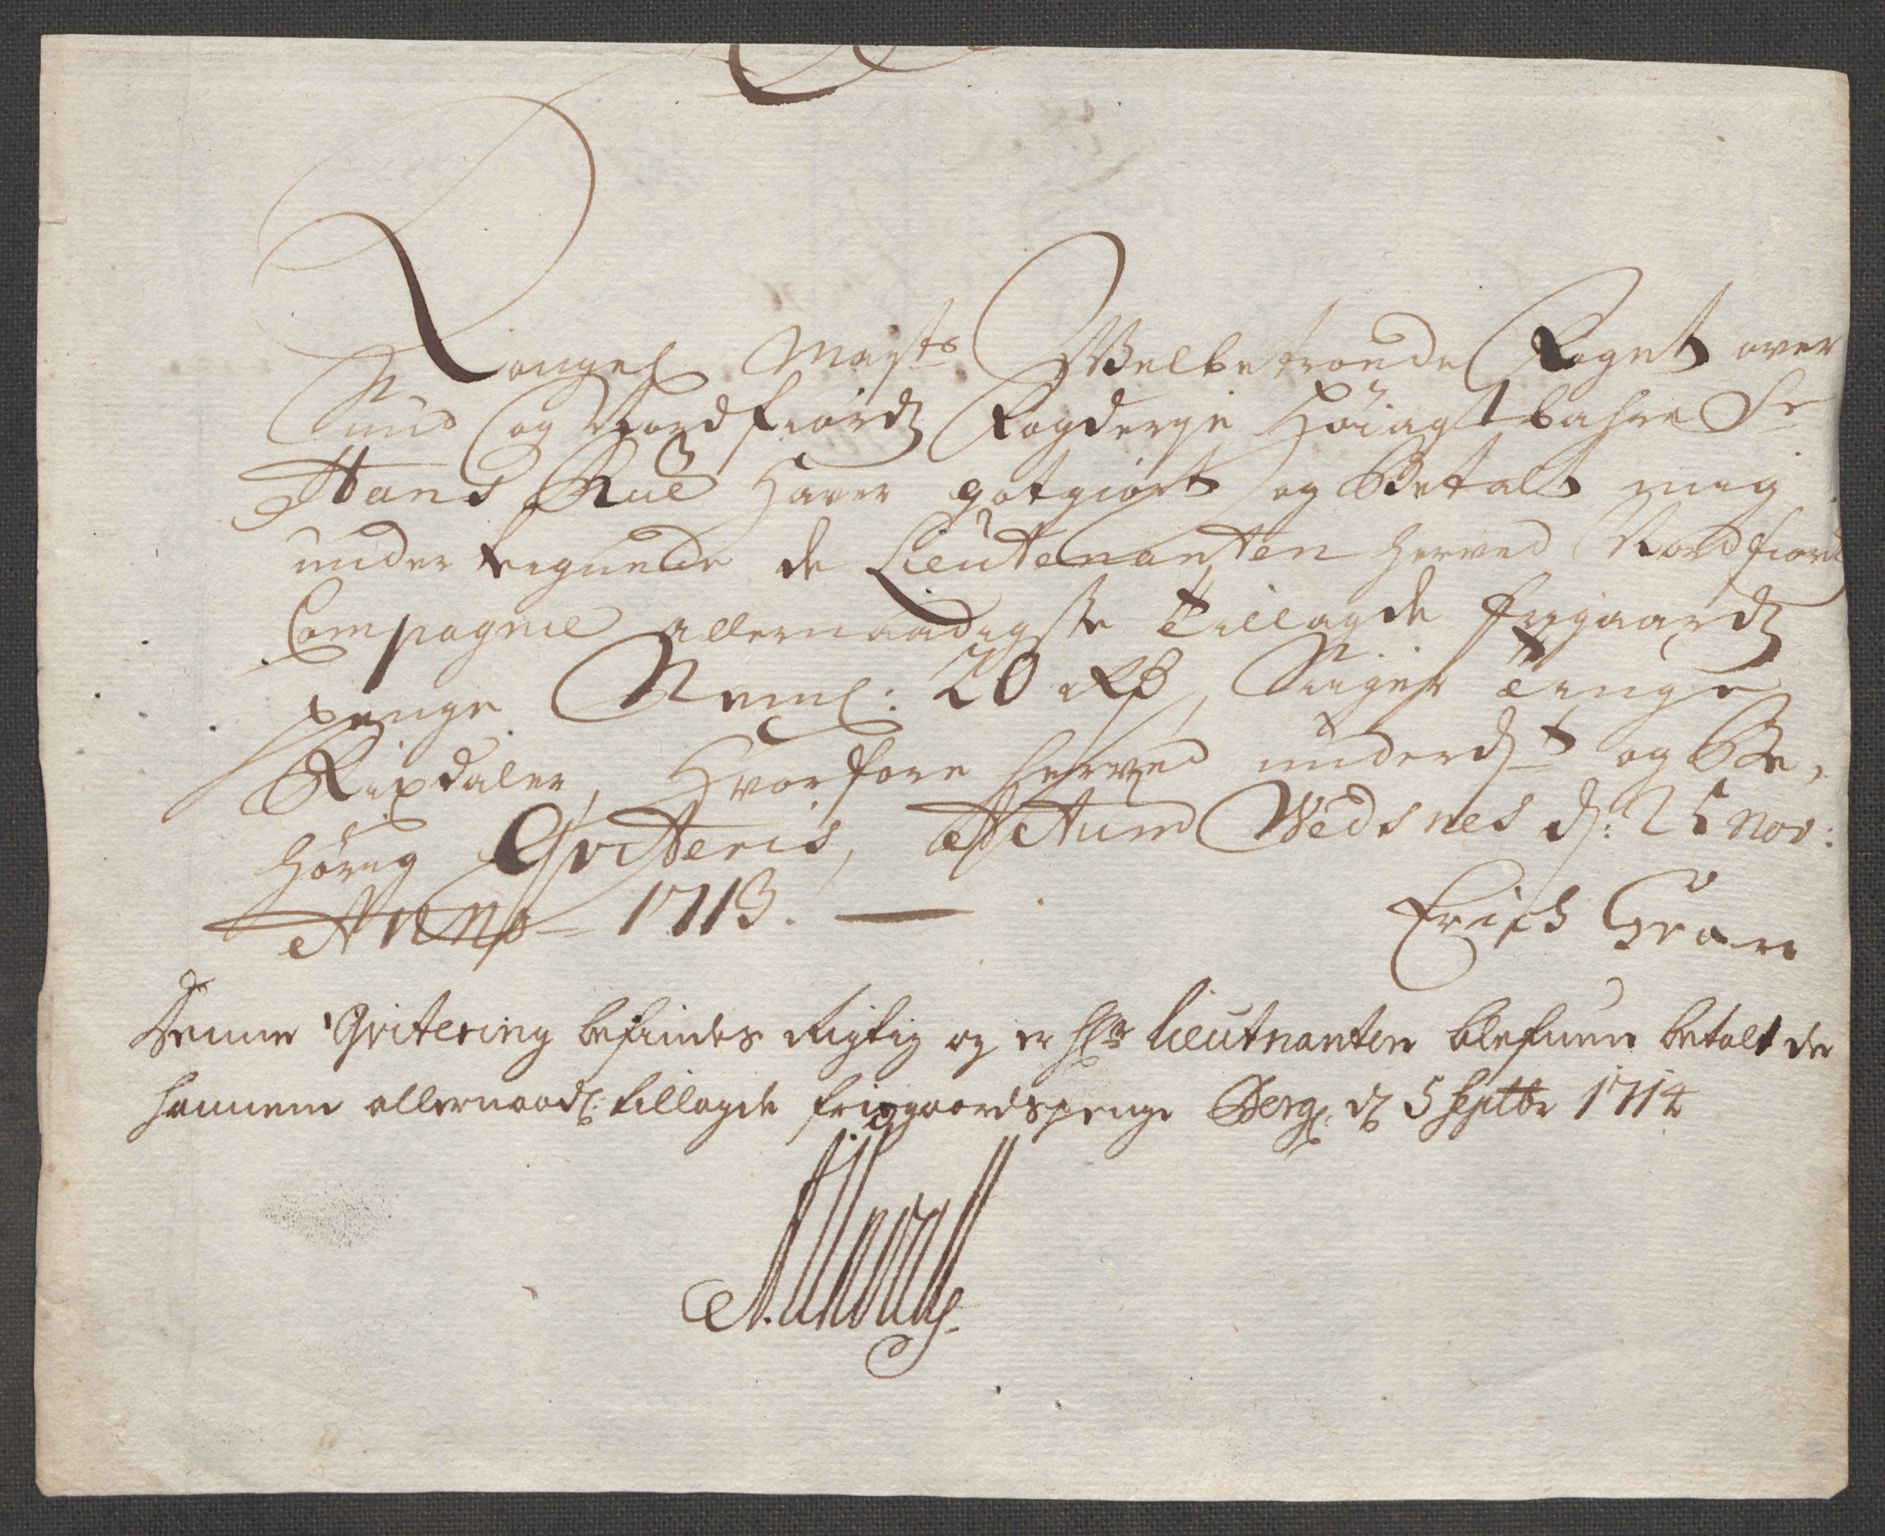 Kongel Mayts Welbetroude Foget over
Sund og Nordfiords Fogderje Höiagtbahre Sr
Hans Rue Haver gotgiort og Betalt mig
under tegnede de Lieutenanten herved Nordfiord
Compagnie allernaadigste Tillagde frigaards
penge Neml: 20 Rd, Siiger Tiuge
Rixdaler, Hvorfore herved underd:t og Be,
hörig Qvitteris, Actum Wedsnes d: 25 Nov:
Anno 1713.
Erich
Denne Qvitering befindes Rigtig og er Hr Lieutnanten blefuen betalt de
hannem allernaad: tillagde frigaardspenge Berg: d 5 Septbr 1714